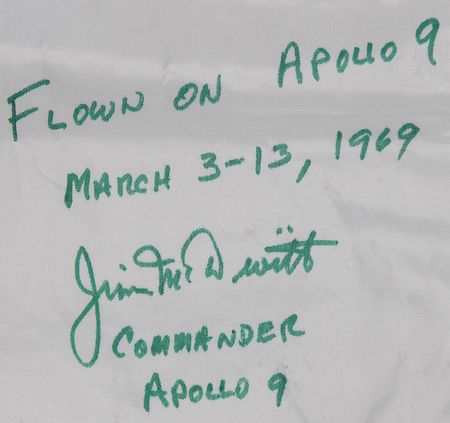 FLOWN ON APOLLO 9
MARCH 3-13, 1969
Jim McDivitt
COMMANDER
APOLLO 9